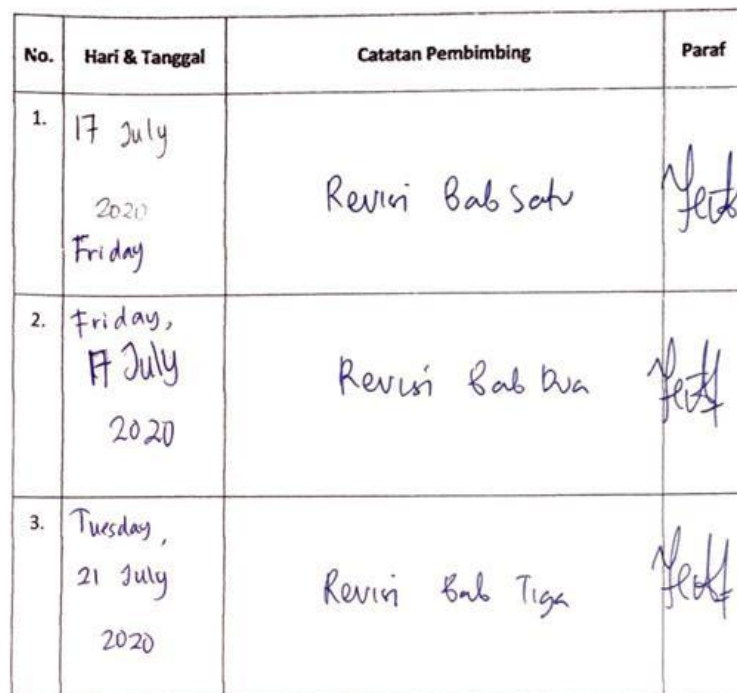 No. Hari & Tanggal Catatan Pembimbing Paraf
1. 17 July
2020
Friday
Revisi Bab Satu
2. Friday,
17 July
2020
Revisi Bab Dua
3. Tuesday,
21 July
2020
Revisi Bab Tiga